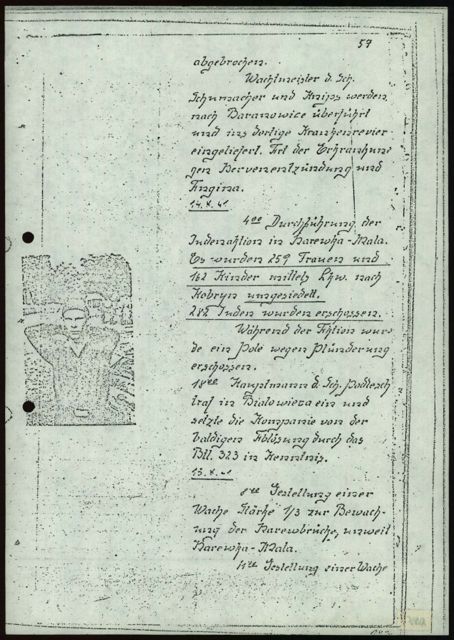 57
abgebrochen.
Wachtmeister d. Sch.
Schumacher und Knips werden
nach Baranowice überführt
und ins dortige Krankenrevier
eingeliefert. Art der Erkrankun
gen Nervenentzündung und
Angina.
14.X.41
4⁰⁰ Durchführung der
Judenaktion in Narewka-Mala.
Es wurden 259 Frauen und
162 Kinder mittels Lkw. nach
Kobryn umgesiedelt.
282 Juden wurden erschossen.
Während der Aktion wur
de ein Pole wegen Plünderung
erschossen.
18⁰⁰ Hauptmann d. Sch. Podlesch
traf in Bialowieza ein und
setzte die Kompanie von der
baldigen Ablösung durch das
Btl. 323 in Kenntnis.
15.X.41
8⁰⁰ Gestellung einer
Wache Stärke 1/3 zur Bewach-
ung der Narewbrücke, unweit
Narewka-Mala.
Gestellung einer Wache